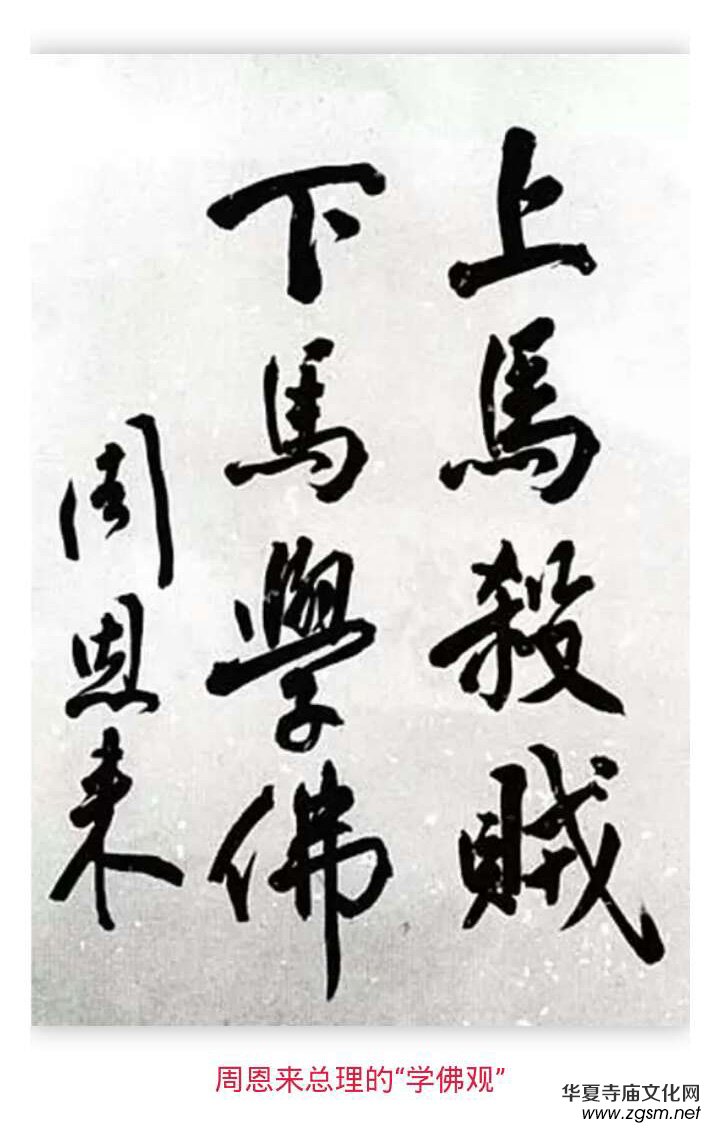 上馬殺賊
下馬學佛
周恩来
周恩来总理的“学佛观”
华夏寺庙文化网
www.zgsm.net